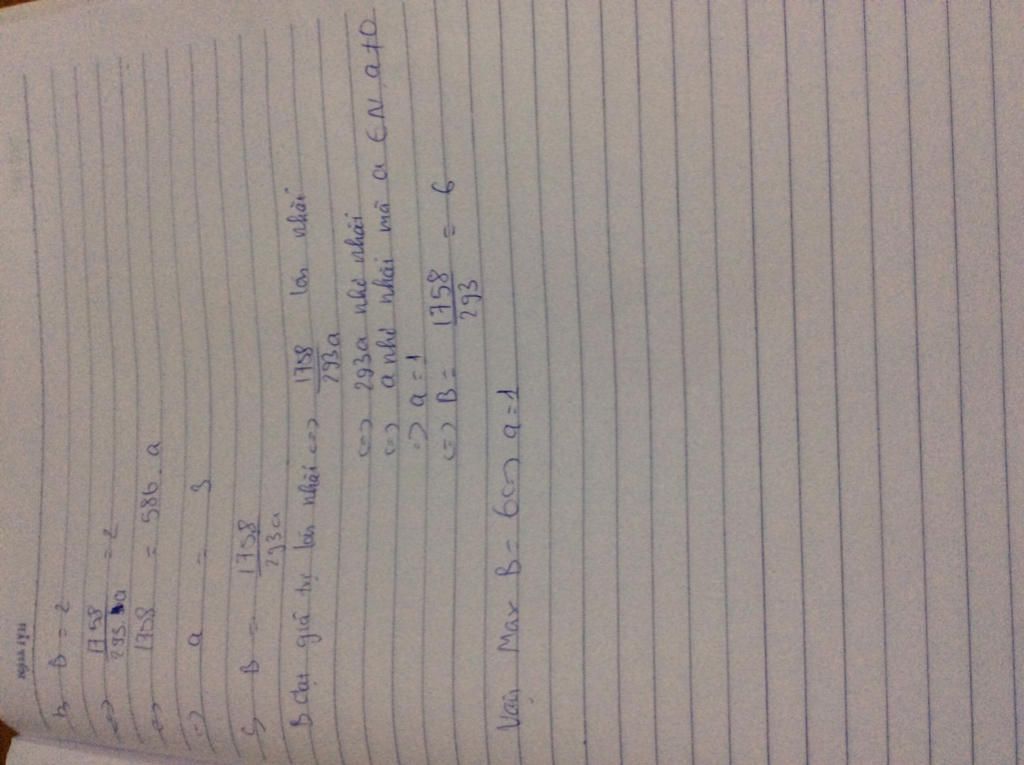 b, B = 2
<=> 1758/293.a = 2
<=> 1758 = 586.a
=> a = 3
c, B = 1758/293a
B đạt giá trị lớn nhất <=> 1758/293a lớn nhất
<=> 293a nhỏ nhất
<=> a nhỏ nhất mà a ∈ N, a ≠ 0
=> a = 1
<=> B = 1758/293 = 6
Vậy Max B = 6 <=> a = 1